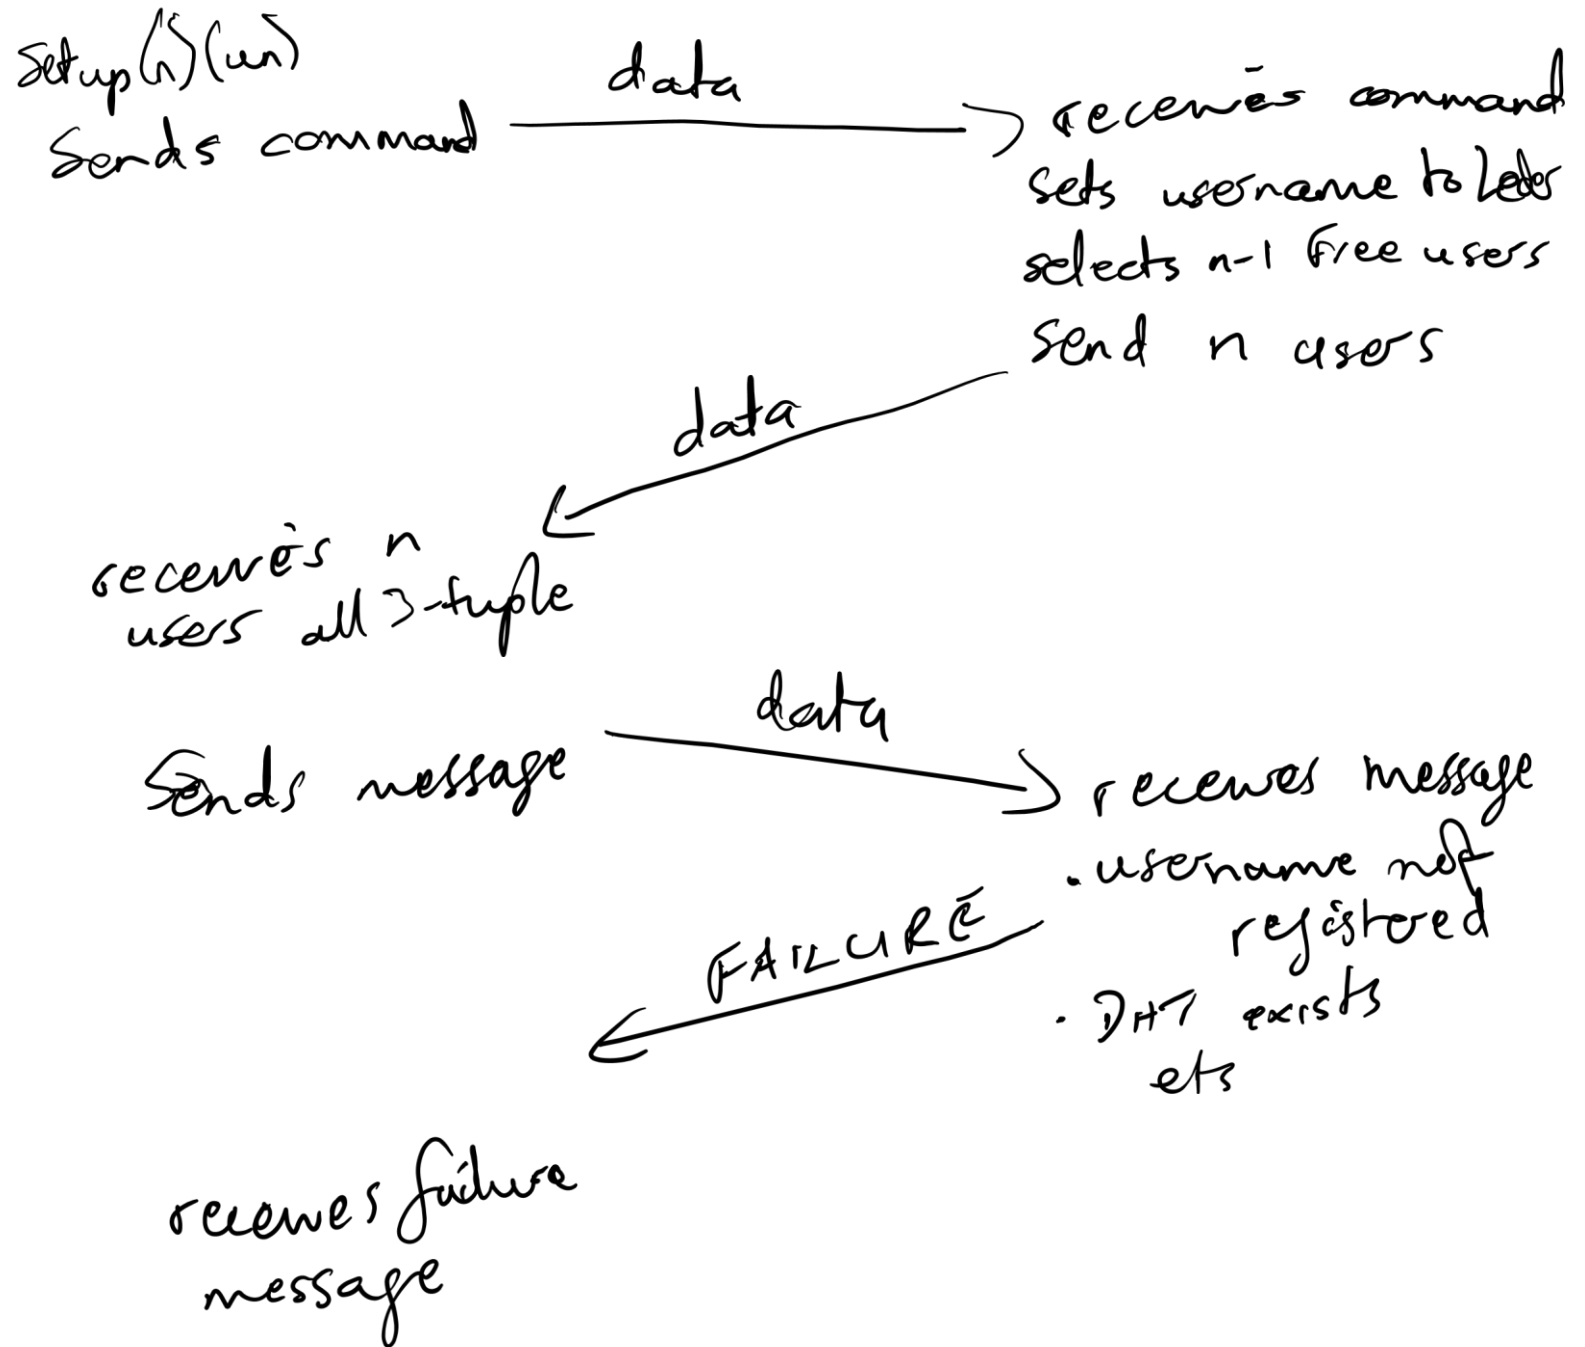 Setup(n)(un)
Sends command
data
receives command
sets username to Leder
selects n-1 Free users
Send n users
data
receives n
users all 3-tuple
Sends message
data
receives message
. username not
registered
. DHT exists
ets
FAILURE
receives failure
message